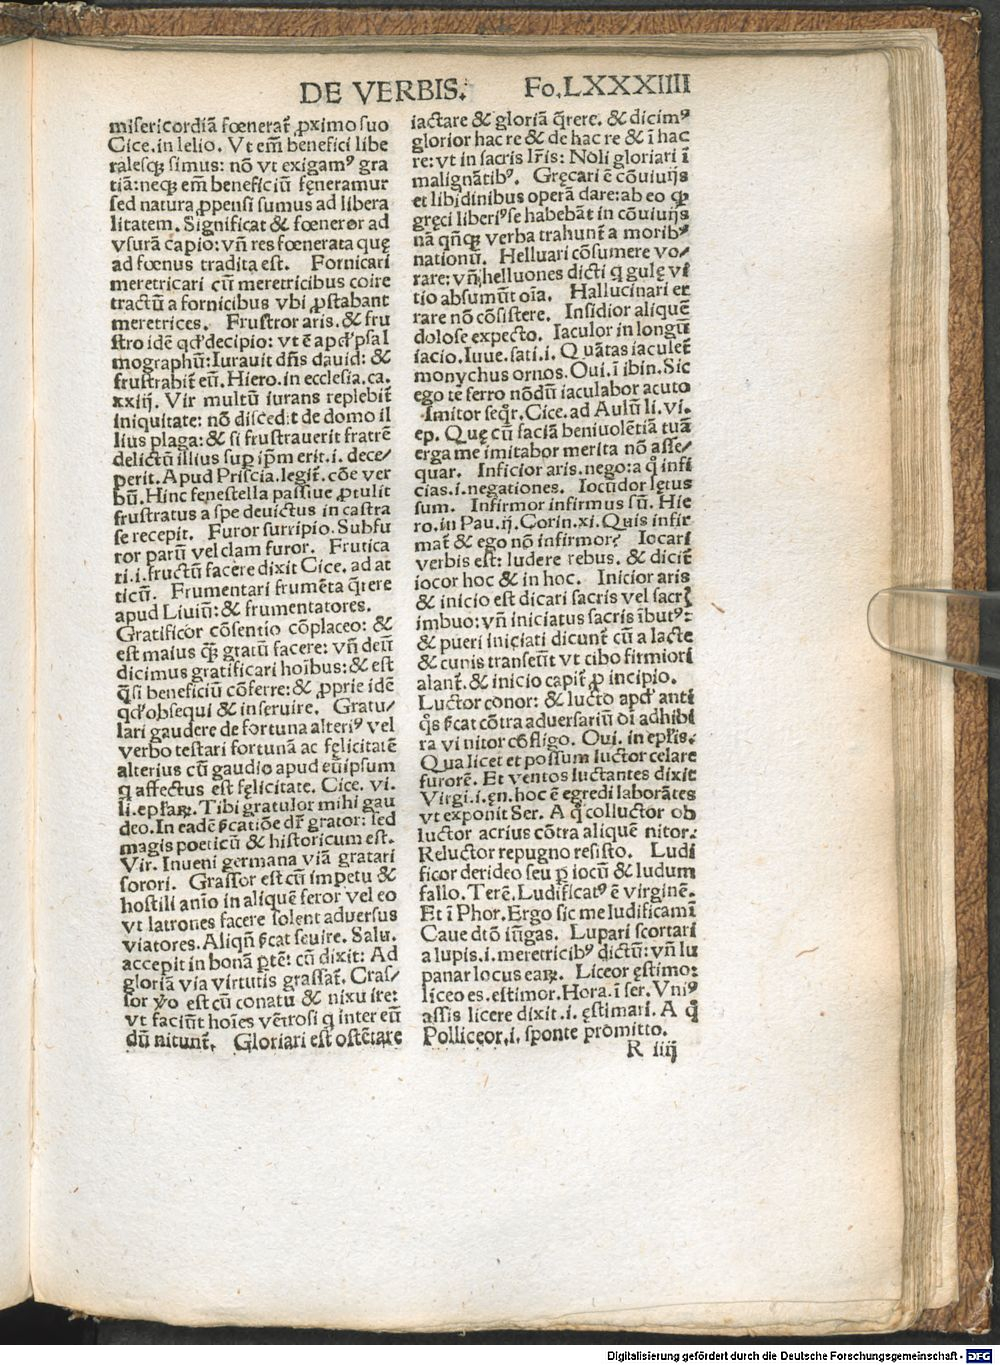 DE VERBIS. Fo.LXXXIIII
misericordiã fœnerat᷑ ꝓximo suo
Cice.in lelio. Vt em̃ benefici libe
ralesqꝫ simus: nõ vt exigamꝰ gra
tiã:neqꝫ em̃ beneficiũ fęneramur
sed natura ꝓpensi sumus ad libera
litatem. Significat & fœneror ad
vsurã capio: vñ res fœnerata quę
ad fœnus tradita est. Fornicari
meretricari cũ meretricibus coire
tractũ a fornicibus vbi ꝓstabant
meretrices. Frustror aris. & fru
stro idẽ qd' decipio: vt ẽ apd' psal
mographũ: Iurauit dñs dauid: &
frustrabit᷑ eũ. Hiero. in ecclesia. ca.
xxiij. Vir multũ iurans replebit᷑
iniquitate: nõ discedit de domo il
lius plaga: & si frustrauerit fratrẽ
delictũ illius suꝑ ip̃m erit.i. dece/
perit. Apud Priscia. legit᷑. cõe ver
bũ. Hinc fenestella passiue ꝓtulit
frustratus a spe deuictus in castra
se recepit. Furor surripio. Subfu
ror parũ vel clam furor. Frutica
ri.i. fructũ facere dixit Cice. ad at
ticũ. Frumentari frumẽta q̃rere
apud Liuiũ: & frumentatores.
Gratificor cõsentio cõplaceo: &
est maius qꝫ̃ gratũ facere: vñ deũ
dicimus gratificari hoĩbus: & est
q̃si beneficiũ cõferre: & ꝓprie idẽ
qd' obsequi & inseruire. Gratu/
lari gaudere de fortuna alteriꝰ vel
verbo testari fortunã ac fęlicitatẽ
alterius cũ gaudio apud eũipsum
q affectus est fęlicitate. Cice. vi.
li.epl'aꝝ. Tibi gratulor mihi gau
deo. In eadẽ ẜcatiõe dr̃ grator: sed
magis poeticũ & historicum est.
Vir. Inueni germana viã gratari
sorori. Grassor est cũ impetu &
hostili aĩo in aliquẽ feror vel eo
vt latrones facere solent aduersus
viatores. Aliqñ ẜcat seuire. Salu.
accepit in bonã ꝑtẽ: cũ dixit: Ad
gloriã via virtutis grassat᷑. Cras/
sor ỽo est cũ conatu & nixu ire:
vt faciũt hoĩes vẽtrosi q inter eũ
dũ nitunt᷑. Gloriari est ostẽtare
iactare & gloriã q̃rere. & dicimꝰ
glorior hac re & de hac re & ĩ hac
re: vt in sacris lr̃is: Noli gloriari ĩ
malignãtibꝰ. Gręcari ẽ cõuiuijs
et libidinibus operã dare: ab eo ꝙ
gręci liberiꝰ se habebãt in cõuiuijs
nã qñqꝫ verba trahunt᷑ a moribꝰ
nationũ. Helluari cõsumere vo/
rare: vñ helluones dicti q gulę vi
tio absumũt oĩa. Hallucinari er
rare nõ cõsistere. Insidior aliquẽ
dolose expecto. Iaculor in longũ
iacio. Iuue. sati.i. Quãtas iaculet᷑
monychus ornos. Oui. ĩ ibin. Sic
ego te ferro nõdũ iaculabor acuto
Imitor seqͬ. Cice. ad Aulũ li. vi.
ep. Quę cũ faciã beniuolẽtiã tuã
erga me imitabor merita nõ asse/
quar. Inficior aris. nego: a qͦ infi
cias.i. negationes. Iocũdor lętus
sum. Infirmor infirmus sũ. Hie
ro. in Pau. ij. Corin. xi. Quis infir
mat᷑ & ego nõ infirmor? Iocari
verbis est: ludere rebus. & dicit᷑
iocor hoc & in hoc. Inicior aris
& inicio est dicari sacris vel sacrĩ
imbuo: vñ iniciatus sacris ĩbutꝰ:
& pueri iniciati dicunt᷑ cũ a lacte
& cunis transeũt vt cibo firmiori
alant᷑. & inicio capit᷑ ꝓ incipio.
Luctor conor: & lucto apd' anti
q̊s ẜcat cõtra aduersariũ oĩ adhibi
ra vi nitor cõfligo. Oui. in epl'is.
Qua licet et possum luctor celare
furorẽ. Et ventos luctantes dixit
Virgi.i.ęn. hoc ẽ egredi laborãtes
vt exponit Ser. A qͦ colluctor ob
luctor acrius cõtra aliquẽ nitor.
Reluctor repugno resisto. Ludi
ficor derideo seu ꝑ iocũ & ludum
fallo. Terẽ. Ludificatꝰ ẽ virginẽ.
Et ĩ Phor. Ergo sic me ludificamĩ
Caue dtõ iũgas. Lupari scortari
a lupis.i. meretricibꝰ dictũ: vñ lu
panar locus eaꝝ. Liceor ęstimo:
liceo es. estimor. Hora. ĩ ser. Vniꝰ
assis licere dixit.i. ęstimari. A qͦ
Polliceor.i. sponte promitto.
R iiij
Digitalisierung gefördert durch die Deutsche Forschungsgemeinschaft - DFG